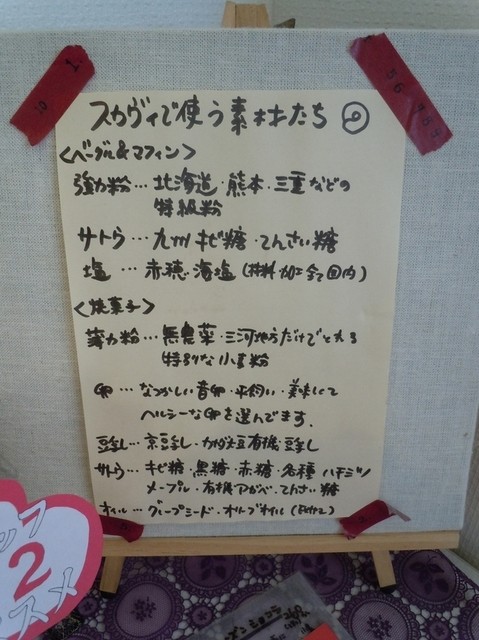 スカヴィで使う素材たち
<ベーグル&マフィン>
強力粉…北海道・熊本・三重などの
特級粉
サトウ…九州キビ糖・てんさい糖
塩…赤穂・海塩(材料加工全て国内)
<焼菓子>
薄力粉…無農薬・三河地方だけでとれる
特別な小麦粉
卵…なつかしい昔卵・平飼い・美味しくて
ヘルシーな卵を選んでます。
豆乳…京豆乳・有機豆乳
サトウ…キビ糖・黒糖・赤糖・各種ハチミツ
メープル・有機アガベ・てんさい糖
オイル…グレープシード・オリーブオイル
ッフ
2
スメ